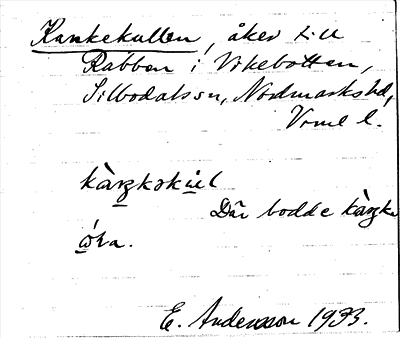 Kankekullen, åker till
Rabben i Vikebotten,
Silbodals sn, Nordmarks hd,
Vrml l.
kàŋkəkul
Där bodde kàŋke
óla.
E. Andersson 1933.